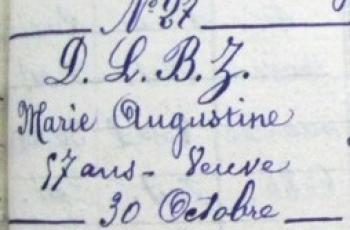 N° 27
D. L. B. Z.
Marie Augustine
57 ans - Veuve
30 Octobre